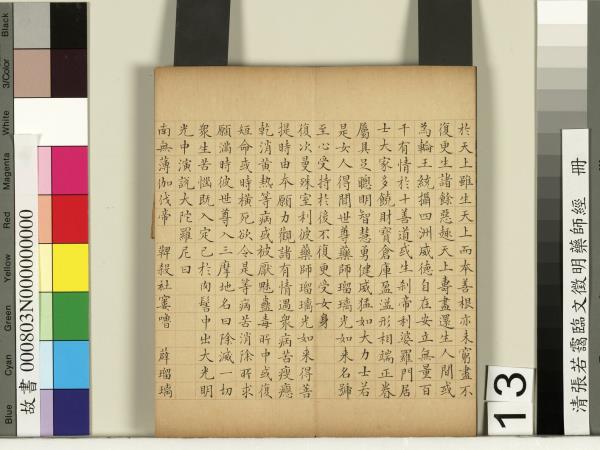 於天上雖生天上而本善根亦未窮盡不
復更生諸餘惡趣天上壽盡還生人間或
為輪王統攝四洲威德自在安立無量百
千有情於十善道或生剎帝利婆羅門居
士大家多饒財寶倉庫盈溢形相端正眷
屬具足聰明智慧勇健威猛如大力士若
是女人得聞世尊藥師瑠璃光如來名號
至心受持於後不復更受女身
復次曼殊室利彼藥師瑠璃光如來得菩
提時由本願力觀諸有情遇衆病苦瘦
乾消黃熱等病或被厭魅蠱毒所中或復
短命或時橫死欲令是等病苦消除所求
願滿時彼世尊入三摩地名曰除滅一切
衆生苦惱既入定已於肉髻中出大光明
光中演說大陀羅尼曰
南無薄伽伐帝 鞞殺社窶嚕 薜瑠璃
清張若靄臨文徵明藥師經 冊
13
故書 000803N000000000
Black
3/Color
White
Magenta
Red
Yellow
Green
Cyan
Blue